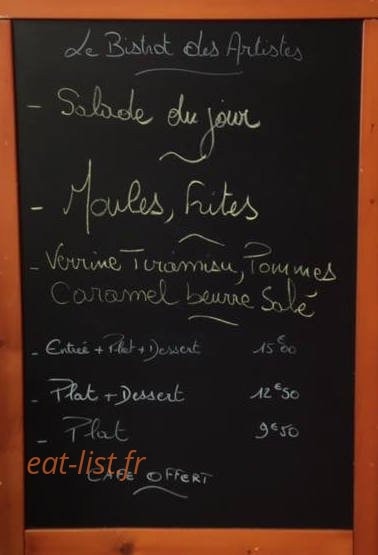 Le Bistrot des Artistes
- Salade du jour
- Moules, Frites
- Verrine Tiramisu, Pommes
Caramel beurre Salé
- Entrée + Plat + Dessert 15€00
- Plat + Dessert 12€50
- Plat 9€50
eat-list.fr
CAFÉ OFFERT